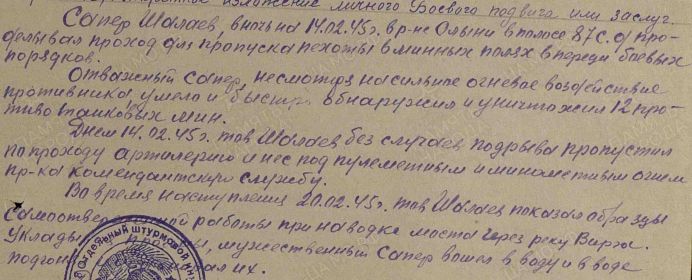 изложение личного боевого подвига или заслуг.
Сапер Шалаев, в ночь на 14.02.45г. в р-не Ольыни в полосе 87 С.Д про-
делывал проход для пропуска пехоты в минных полях впереди боевых
порядков.
Отважный сапер, несмотря на сильное огневое воздействие
противника умело и быстро обнаружил и уничтожил 12 про-
тиво танковых мин.
Днем 14.02.45г. тов Шалаев без случаев подрыва пропустил
по проходу артилерию и нес под пулеметным и минометным огнем
пр-ка комендантскую службу.
Во время наступления 20.02.45г. тов Шалаев показал образцы
самоотверженной работы при наводке моста через реку Варта.
Уклады мужественный сапер вошел в воду и в воде
подгон их.
ОТДЕЛЬНЫЙ ШТУРМОВОЙ ИН